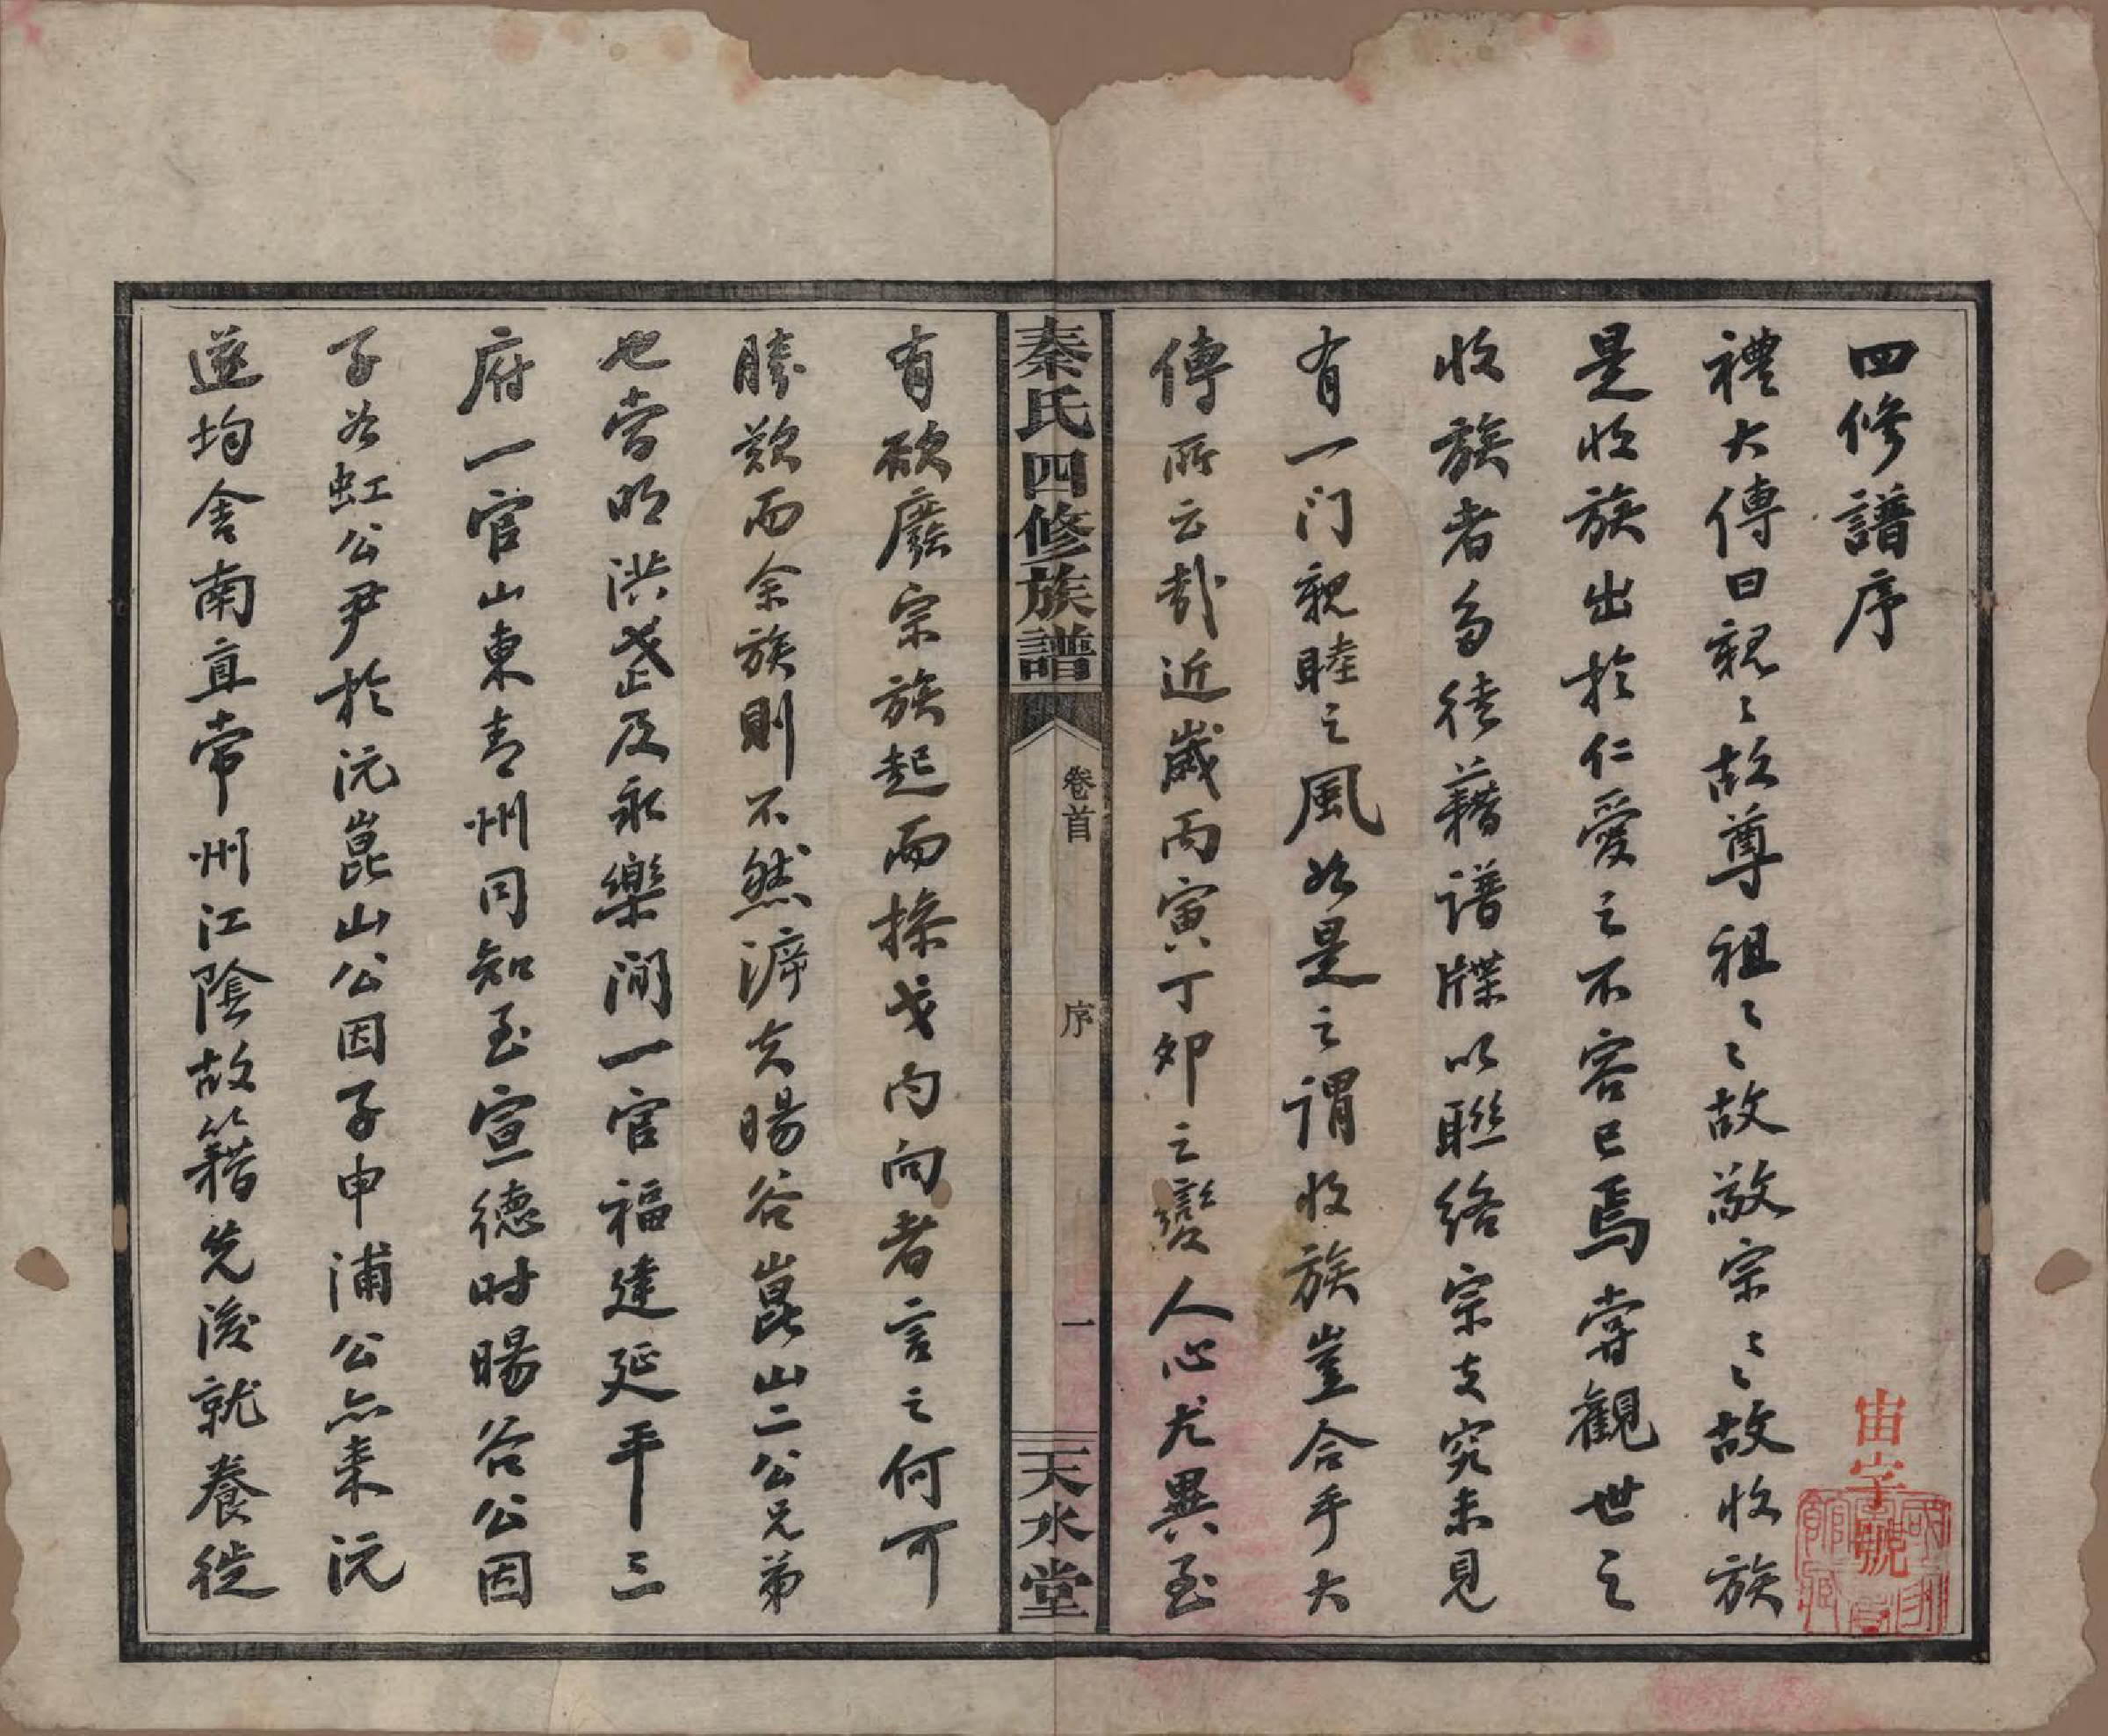 四修譜序
禮大傳曰親〻故尊祖〻〻故敬宗〻〻故收族
是收族出於仁愛之不容已焉嘗觀世之
收族者多徒藉譜牒以聯絡宗支究未見
有一门親睦之風如是之謂收族豈合乎大
傳所云哉近歲丙寅丁卯之變人心尤異至
秦氏四修族譜
卷首
序
一
天水堂
有欲廢宗族起而操戈內向者言之何可
勝歎而余族則不然溯夫暘谷崑山二公兄弟
也當明洪武及永樂间一官福建延平三
府一官山東青州同知至宣德时暘谷公因
子若虹公尹於沅崑山公因子申浦公亦来沅
遂均舍南直常州江陰故籍先後就養徙
宙字號